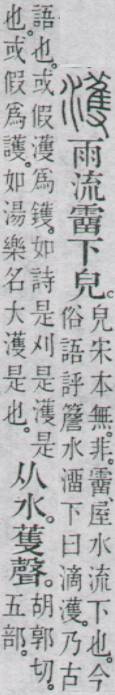 濩
雨流霤下皃。
皃宋本無。非。霤、屋水流下也。今
俗語評簷水澑下曰滴濩。乃古
語也。或假濩爲鑊。如詩是刈是濩是
也。或假爲護。如湯樂名大濩是也。
从水。蒦聲。
胡郭切。
五部。